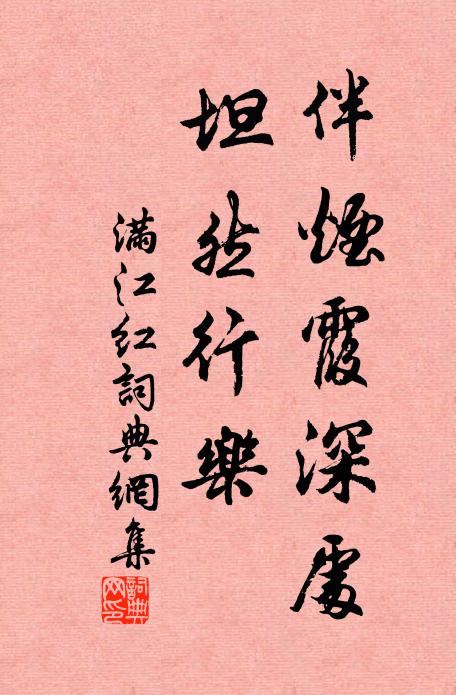 伴煙霞深處
坦然行樂
滿江紅詞典網集
詞典網印